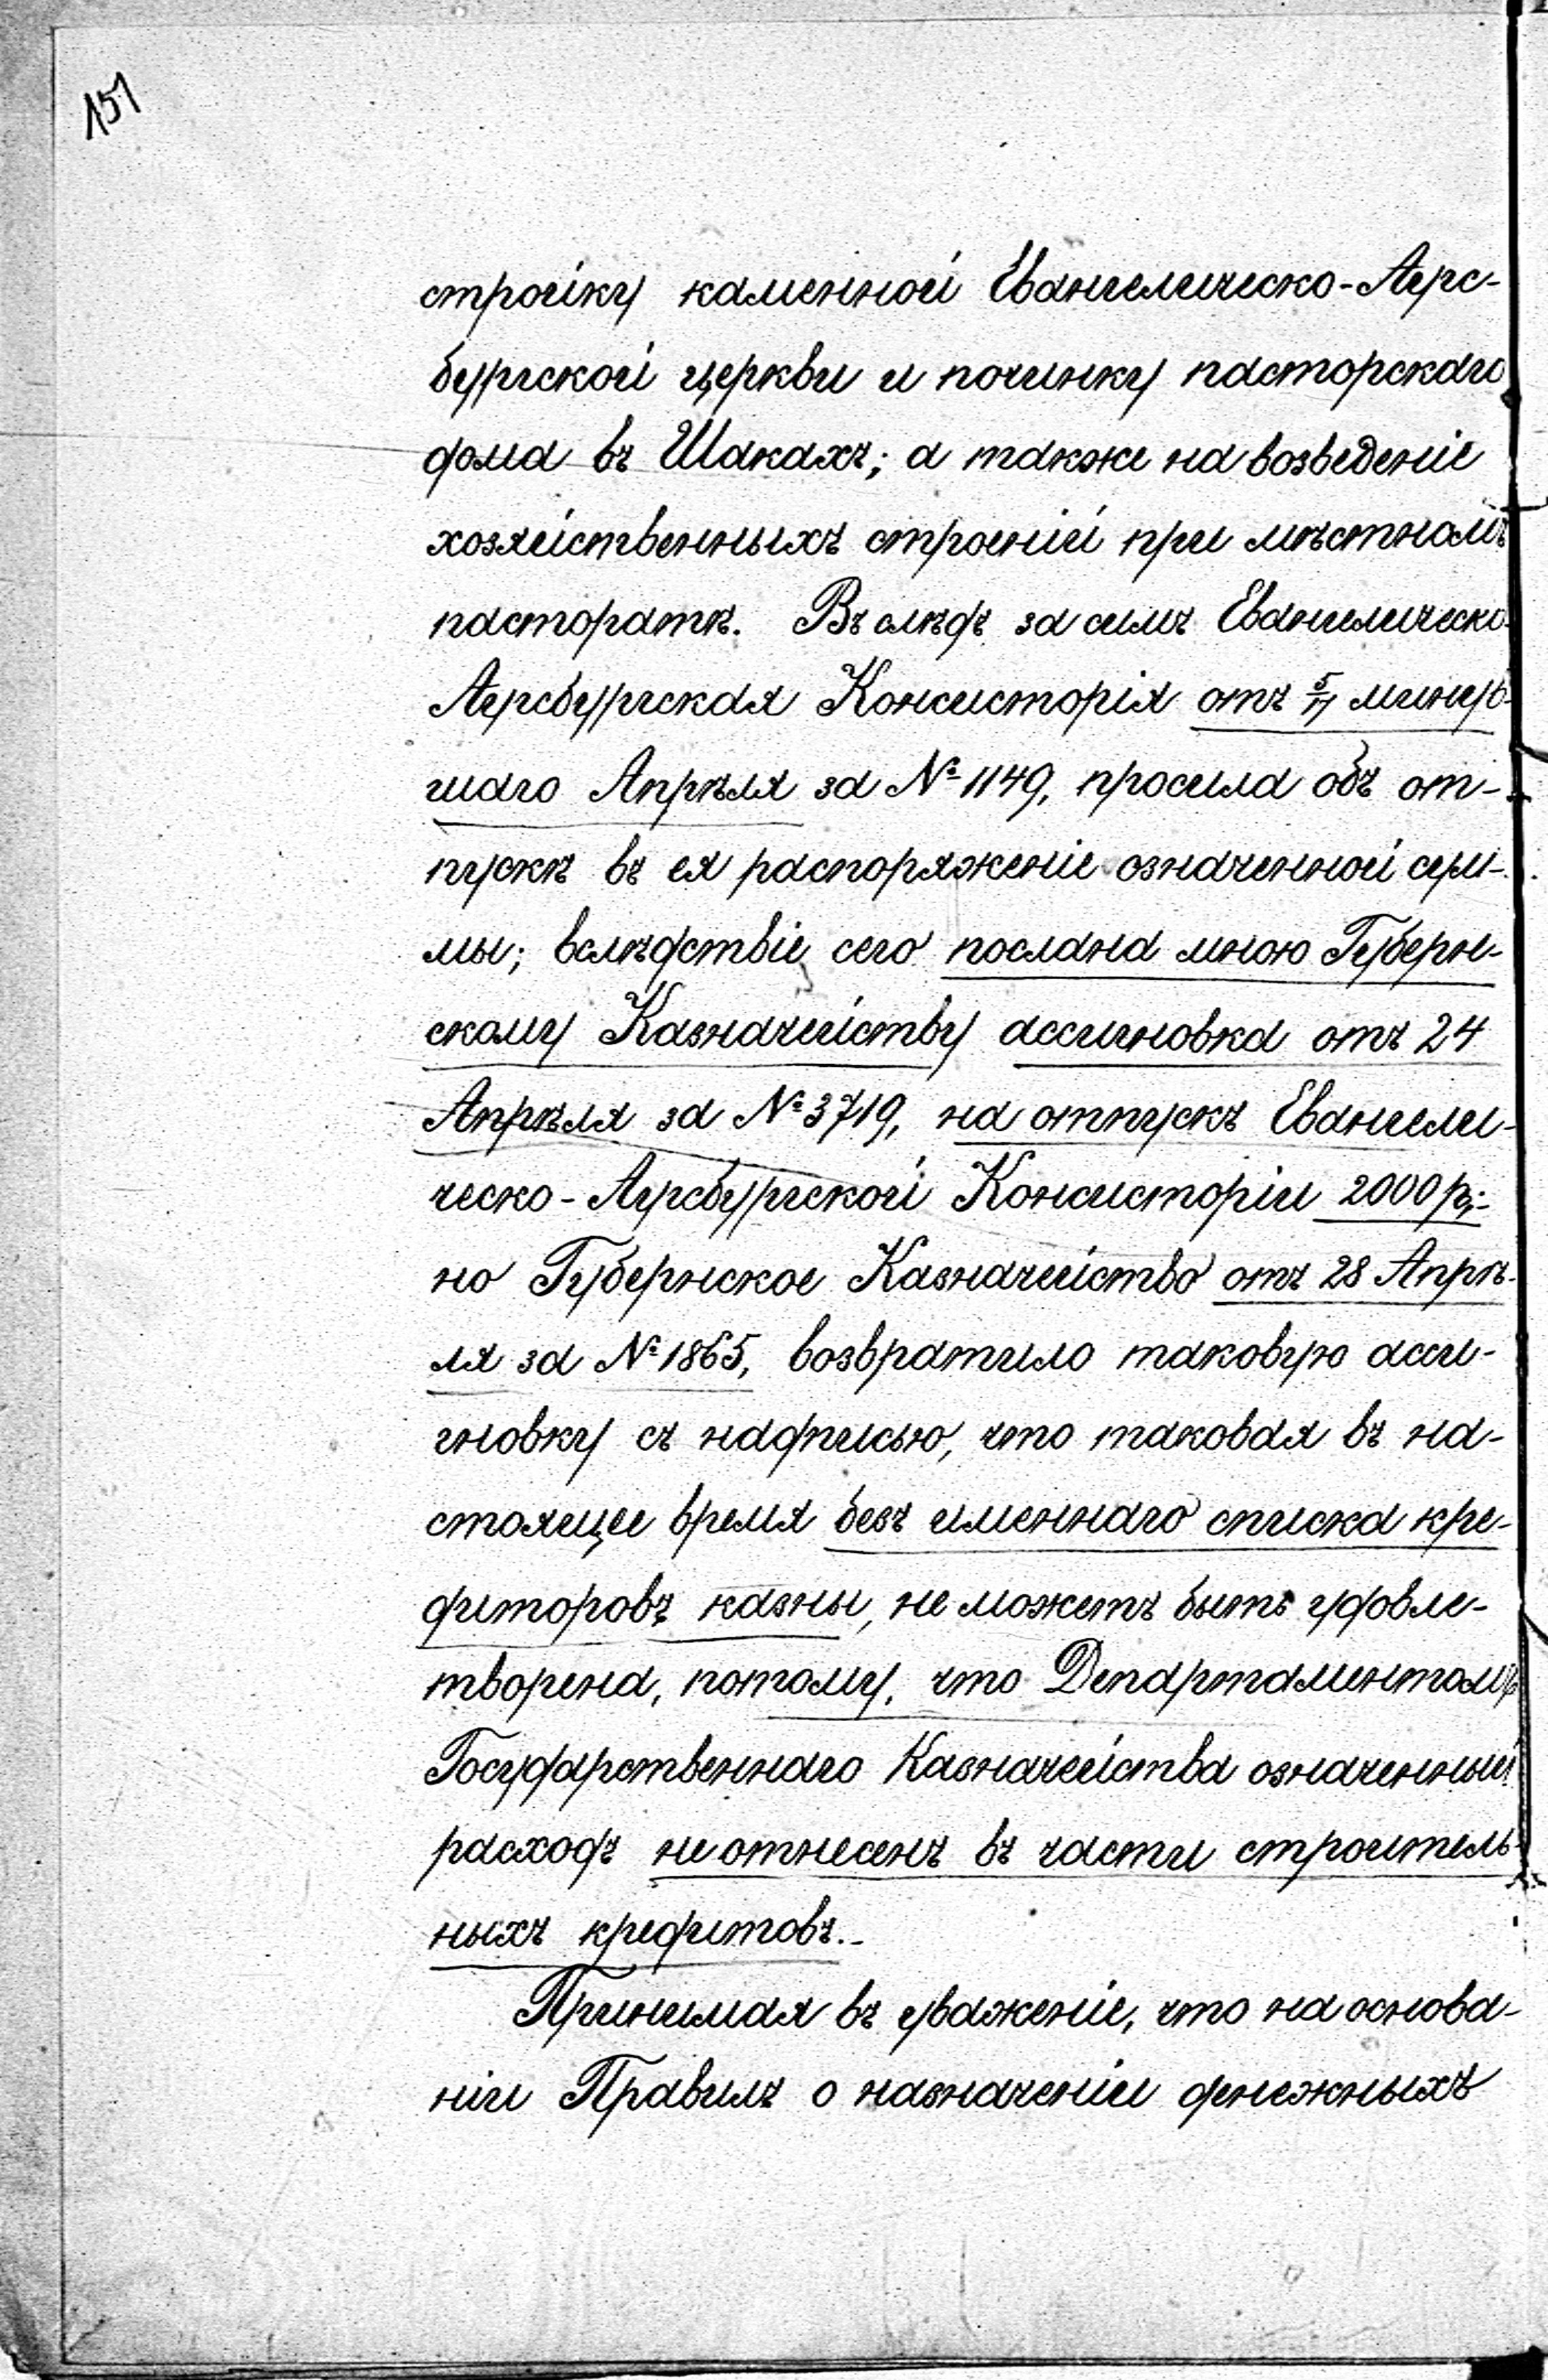 151
стройку каменной Евангелическо-Аугс-
бургской церкви и починку пасторскаго
дома въ Шакахъ; а также на возведеніе
хозяйственныхъ строеній при мѣстномъ
пасторатѣ. Въ слѣдъ за симъ Евангелическо-
Аугсбургская Консисторія отъ 5/17 минув-
шаго Апрѣля за № 1149, просила объ от-
пускѣ въ ея распоряженіе означенной сум-
мы; вслѣдствіе сего послана мною Губерн-
скому Казначейству ассигновка отъ 24
Апрѣля за № 3719, на отпускъ Евангели-
ческо-Аугсбургской Консисторіи 2000 р;-
но Губернское Казначейство отъ 28 Апрѣ-
ля за № 1865, возвратило таковую асси-
гновку съ надписью, что таковая въ на-
стоящее время безъ именнаго списка кре-
диторовъ казны, не можетъ быть удовле-
творена, потому, что Департаментомъ
Государственнаго Казначейства означенный
расходъ не отнесенъ въ части строитель-
ныхъ кредитовъ.-
Принимая въ уваженіе, что на основа-
ніи Правилъ о назначеніи денежныхъ